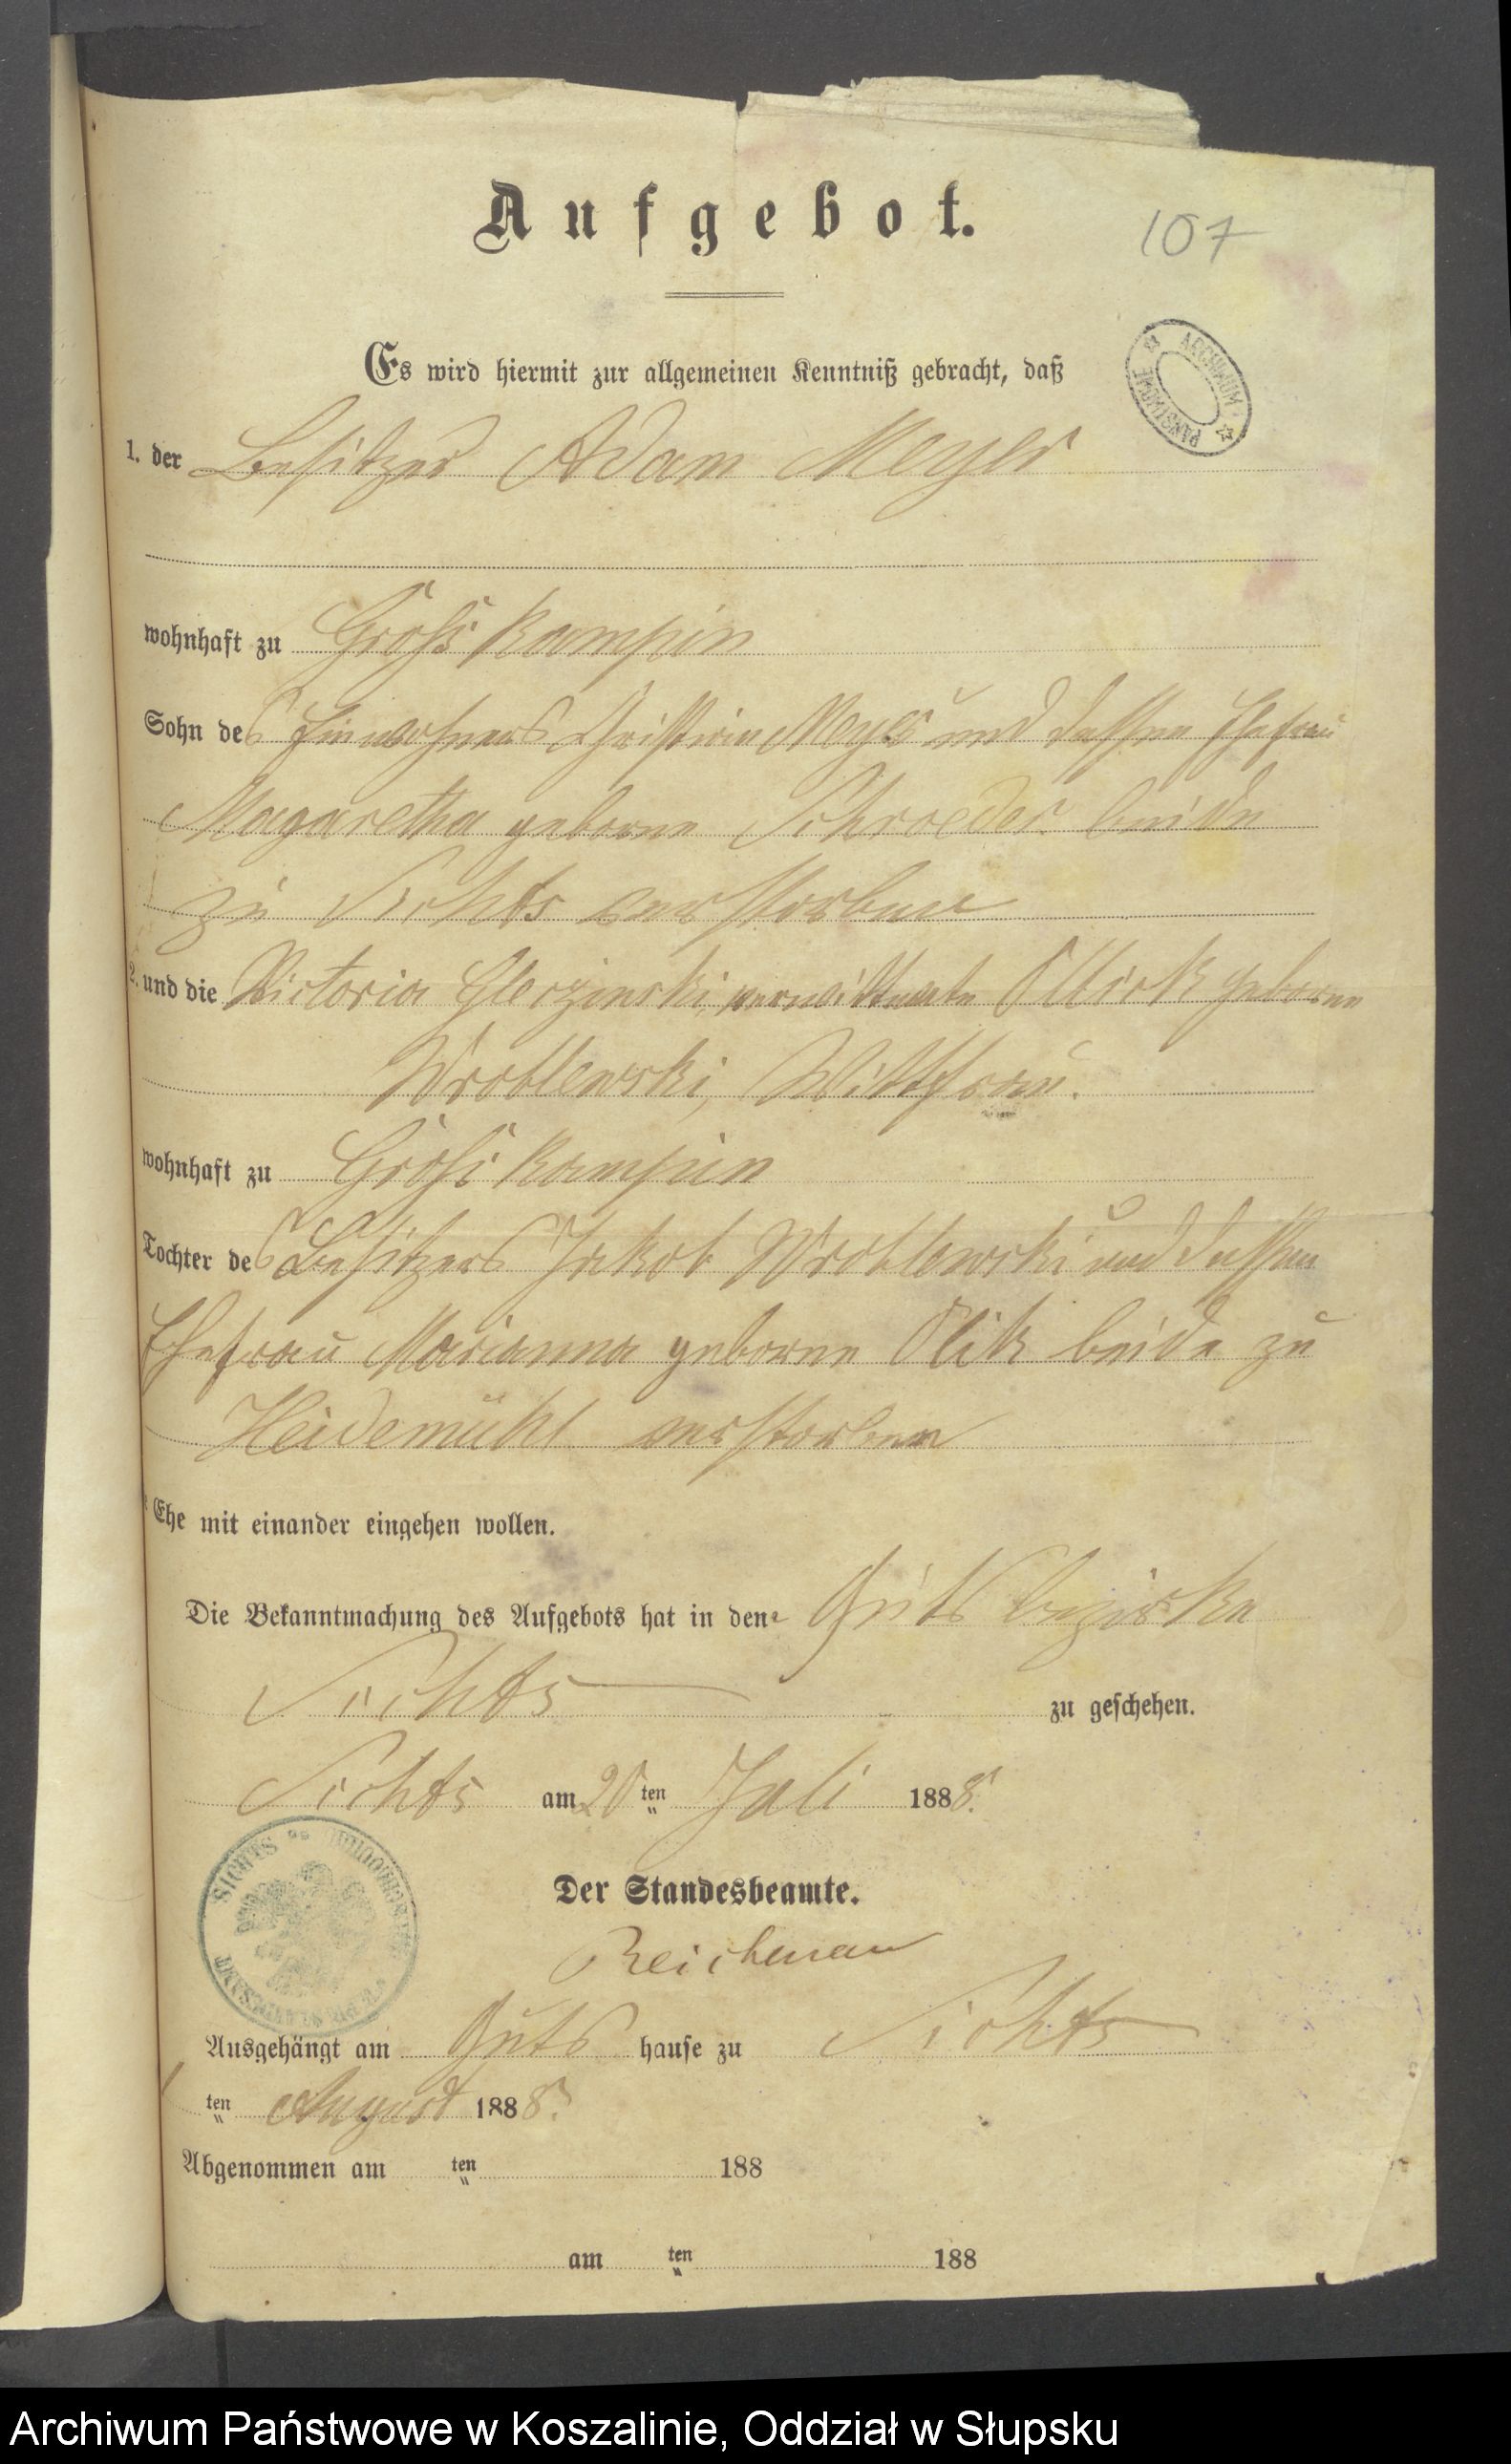 Aufgebot.
107
Es wird hiermit zur allgemeinen Kenntniß gebracht, daß
ARCHIWUM PAŃSTWOWE
1. der Besitzer Adam Meyer
wohnhaft zu Groß Kampin
Sohn des Einwohners Christian Meyer und dessen Ehefrau
Magaretha geborne Schroeder beide
zu Sichts verstorben
2. und die Victoria verwittwete Ollick geborne
Wroblewski, Wittfrau.
wohnhaft zu Groß Kampin
Tochter des Besitzers Jakob Wroblewski und dessen
Ehefrau Marianna geborne Olik beide zu
Heidemühl verstorben
Ehe mit einander eingehen wollen.
Die Bekanntmachung des Aufgebots hat in dem Guts bezirke
Sichts zu geschehen.
Sichts am 20ten Juli 1888.
SICHTS
Der Standesbeamte.
Reichenau
Ausgehängt am Guts hause zu Sichts
ten August 1888.
Abgenommen am ten 188
am ten 188
Archiwum Państwowe w Koszalinie, Oddział w Słupsku